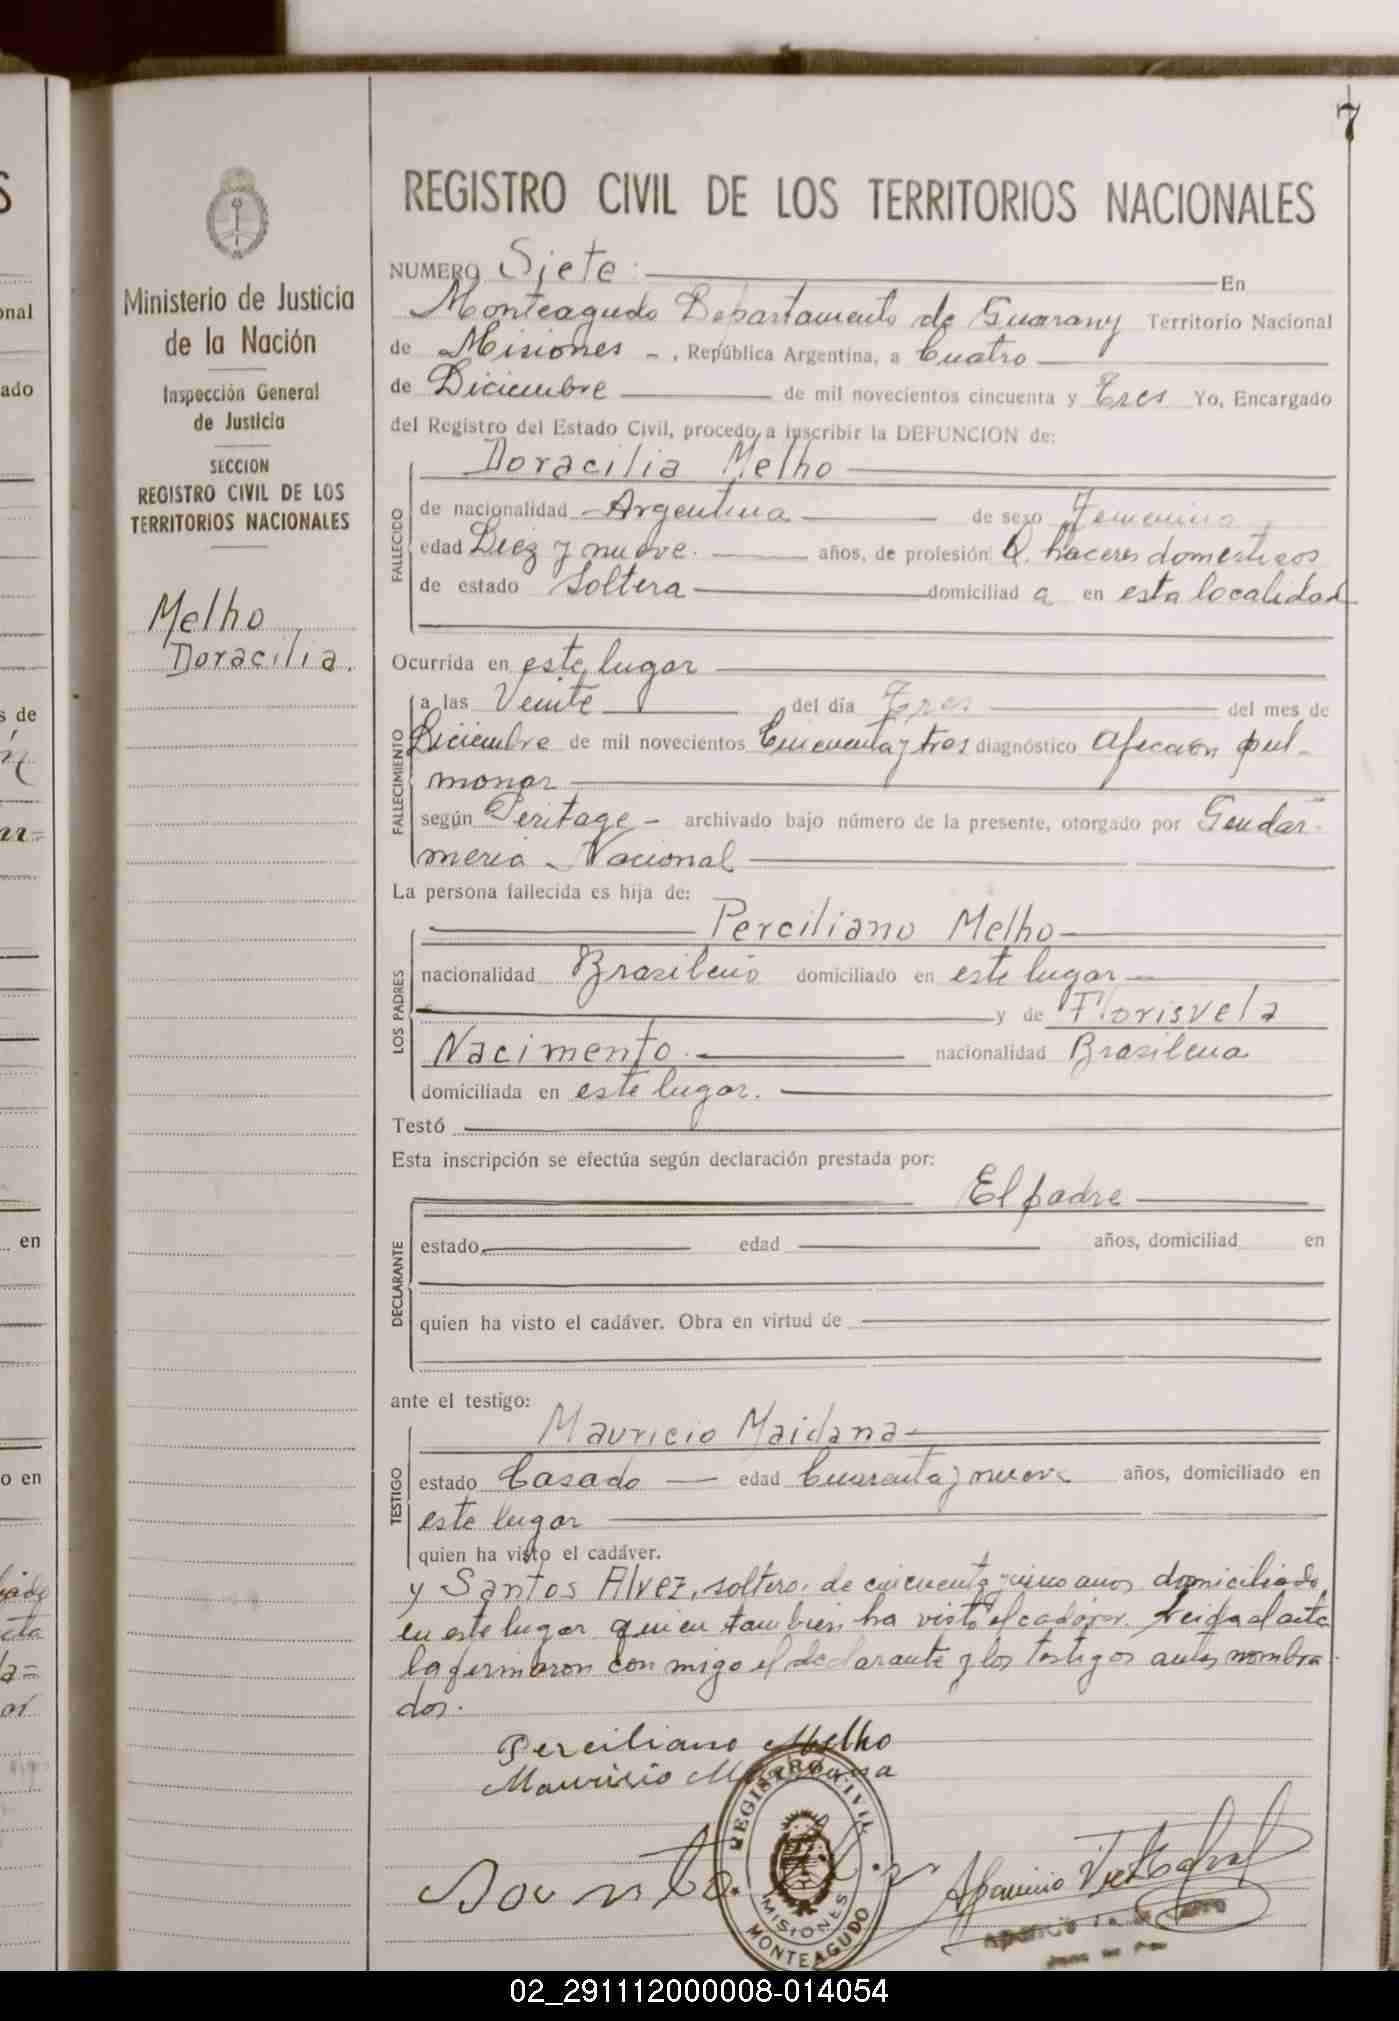 7
REGISTRO CIVIL DE LOS TERRITORIOS NACIONALES
Ministerio de Justicia
de la Nación
Inspección General
de Justicia
SECCION
REGISTRO CIVIL DE LOS
TERRITORIOS NACIONALES
Melho
Doracilia.
NUMERO Siete En
Monteagudo Departamento de Guarany Territorio Nacional
de Misiones -, República Argentina, a Cuatro
de Diciembre de mil novecientos cincuenta y Tres Yo, Encargado
del Registro del Estado Civil, procedo a inscribir la DEFUNCION de:
Doracilia Melho
FALLECIDO
de nacionalidad Argentina de sexo Femenino
edad Diez y nueve. años, de profesión Q. haceres domesticos
de estado Soltera domiciliad a en esta localidad
Ocurrida en este lugar
FALLECIMIENTO
a las Veinte del día Tres del mes de
Diciembre de mil novecientos Cincuenta y tres diagnóstico Afección pul-
monar
según Peritage - archivado bajo número de la presente, otorgado por Gendar-
meria Nacional
La persona fallecida es hija de:
LOS PADRES
Perciliano Melho
nacionalidad Brasileño domiciliado en este lugar
y de Florisvela
Nacimento. nacionalidad Brasileña
domiciliada en este lugar.
Testó
Esta inscripción se efectúa según declaración prestada por:
DECLARANTE
El padre
estado edad años, domiciliad en
quien ha visto el cadáver. Obra en virtud de
ante el testigo:
TESTIGO
Mauricio Maidana
estado Casado edad Cuarenta y nueve años, domiciliado en
este lugar
quien ha visto el cadáver.
y Santos Alvez, soltero, de cincuenta y cinco años domiciliado
en este lugar quien tambien ha visto el cadáver. Leida el acta
la firmaron conmigo el declarante y los testigos antes nombra-
dos.
Perciliano Melho
Mauricio Maidana
REGISTRO CIVIL
MISIONES
MONTEAGUDO
Aparicio
02_291112000008-014054